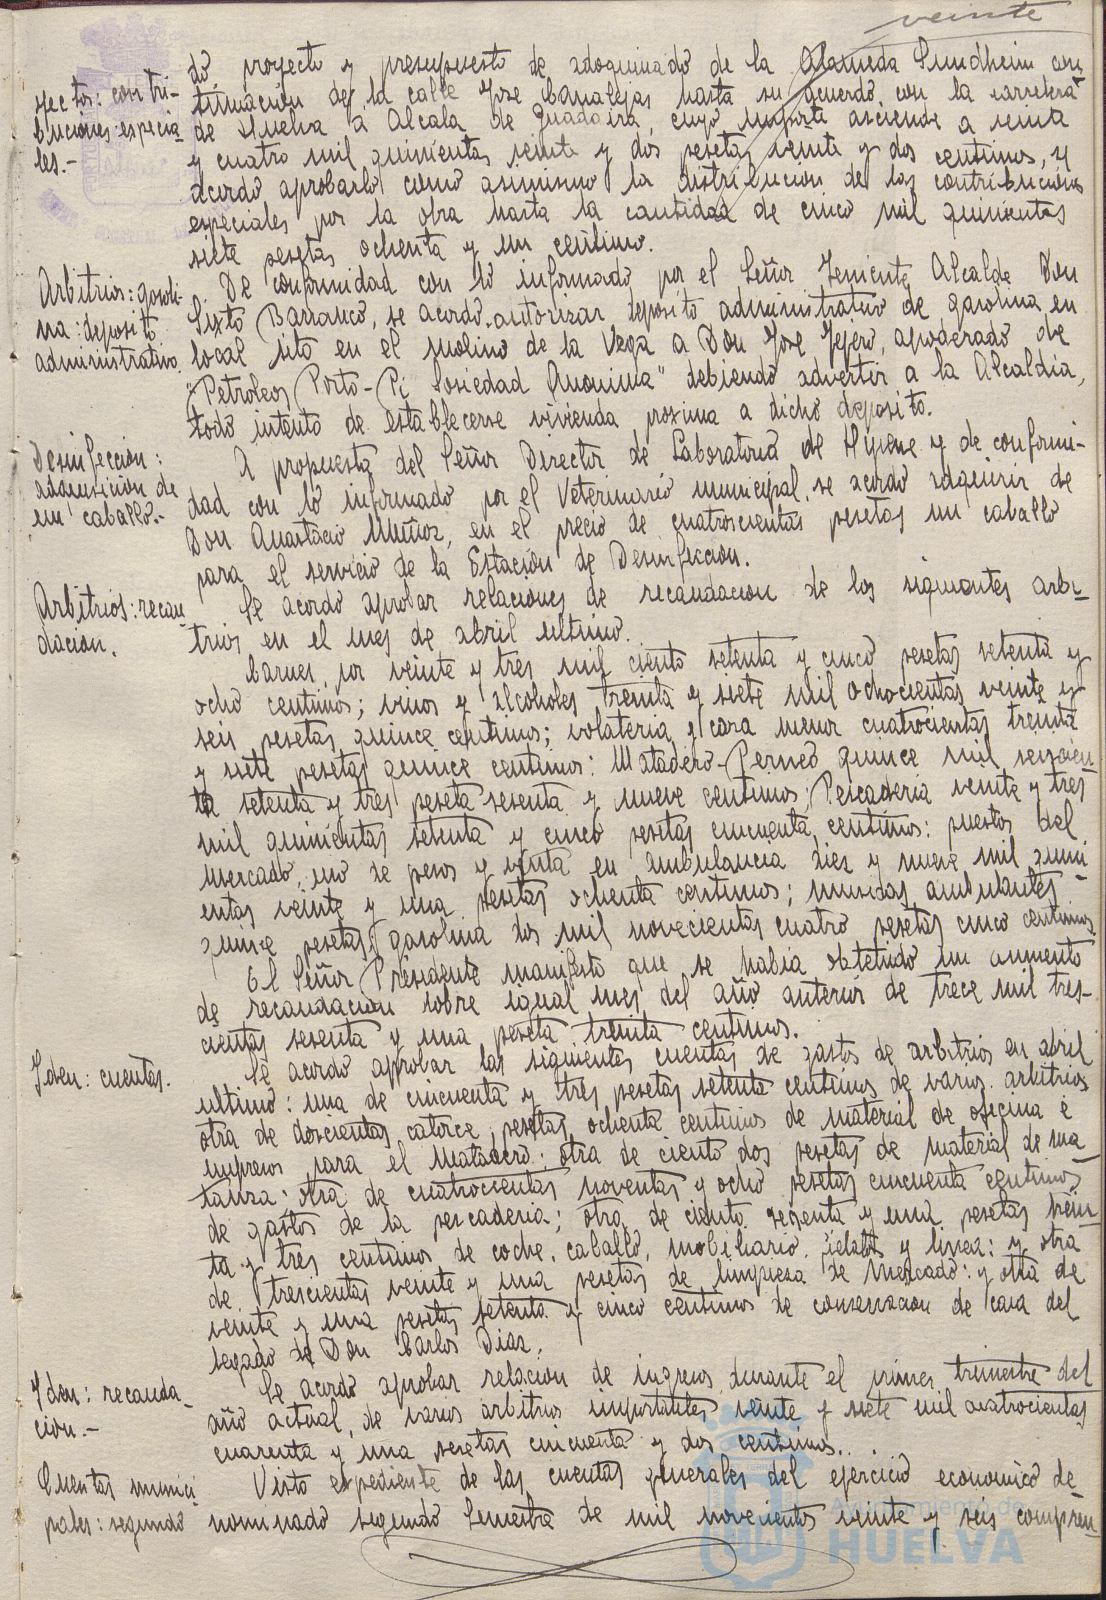 veinte
do proyecto y presupuesto de adoquinado de la Alameda Sundheim con
yectos: contri-
tinuación de la calle Jose Canalejas hasta su acuerdo con la carretera
buciones especia
de Huelva a Alcala de Guadaira, cuyo importe asciende a veinte
les.-
y cuatro mil quinientas veinte y dos pesetas veinte y dos centimos, y
acordo aprobarlo como asimismo la distribucion de las contribuciones
especiales por la obra hasta la cantidad de cinco mil quinientas
siete pesetas ochenta y un centimo.
Arbitrios: gasoli-
De conformidad con lo informado por el Señor Teniente Alcalde Don
na: deposito
Sixto Barranco, se acordo autorizar deposito administrativo de gasolina en
administrativo.
local sito en el molino de la Vega a Don Jose Tejero, apoderado de
"Petroleos Porto-Pi Sociedad Anonima" debiendo advertir a la Alcaldia,
todo intento de establecerse vivienda proxima a dicho deposito.
Desinfeccion:
A propuesta del Señor Director de Laboratorio de Higiene y de conformi-
adquisicion de
dad con lo informado por el Veterinario municipal, se acordo adquirir de
un caballo.-
Don Anastacio Muñoz, en el precio de cuatroscientas pesetas un caballo
para el servicio de la Estación de Desinfeccion.
Arbitrios: recau-
Se acordo aprobar relaciones de recaudacion de los siguientes arbi-
dacion.
trios en el mes de abril ultimo.
Carnes, por veinte y tres mil ciento setenta y cinco pesetas setenta y
ocho centimos; vinos y alcoholes treinta y siete mil ochocientas veinte y
seis pesetas quince centimos; volateria y caza menor cuatrocientas treinta
y siete pesetas quince centimos: Matadero-Perneo quince mil seiscien
ta setenta y tres peseta sesenta y nueve centimos; Pescaderia veinte y tres
mil quinientas setenta y cinco pesetas cincuenta centimos: puestos del
mercado, uso de pesos y venta en ambulancia diez y nueve mil quini-
entas veinte y una pesetas ochenta centimos; musicas ambulantes
quince pesetas, gasolina dos mil novecientas cuatro pesetas cinco centimos
El Señor Presidente manifesto que se habia obtenido un aumento
de recaudacion sobre igual mes del año anterior de trece mil tres-
cientas sesenta y una peseta treinta centimos.
Iden: cuentas.
Se acordo aprobar las siguientes cuentas de gastos de arbitrios en abril
ultimo: una de cincuenta y tres pesetas setenta centimos de varios arbitrios
otra de doscientas catorce pesetas ochenta centimos de material de oficina é
impresos para el Matadero: otra de ciento dos pesetas de material de ma
tanza: otra de cuatrocientas noventas y ocho pesetas cincuenta centimos
de gastos de la pescaderia; otra de ciento sesenta y una pesetas trein-
ta y tres centimos de coche, caballo, mobiliario, fielatos y linea: y otra
de trescientas veinte y una pesetas de limpieza de Mercado: y otra de
veinte y una pesetas setenta y cinco centimos de conservacion de casa del
legado de Don Carlos Diaz.
Iden: recauda-
Se acordo aprobar relacion de ingresos durante el primer trimestre del
cion.-
año actual, de varios arbitrios importantes veinte y siete mil cuatrocientas
cuarenta y una pesetas cincuenta y dos centimos..
Cuentas munici
Visto expediente de las cuentas generales del ejercicio economico de-
pales: segundo
nominado segundo Semestre de mil novecientos veinte y seis compren-
Ayuntamiento de
HUELVA